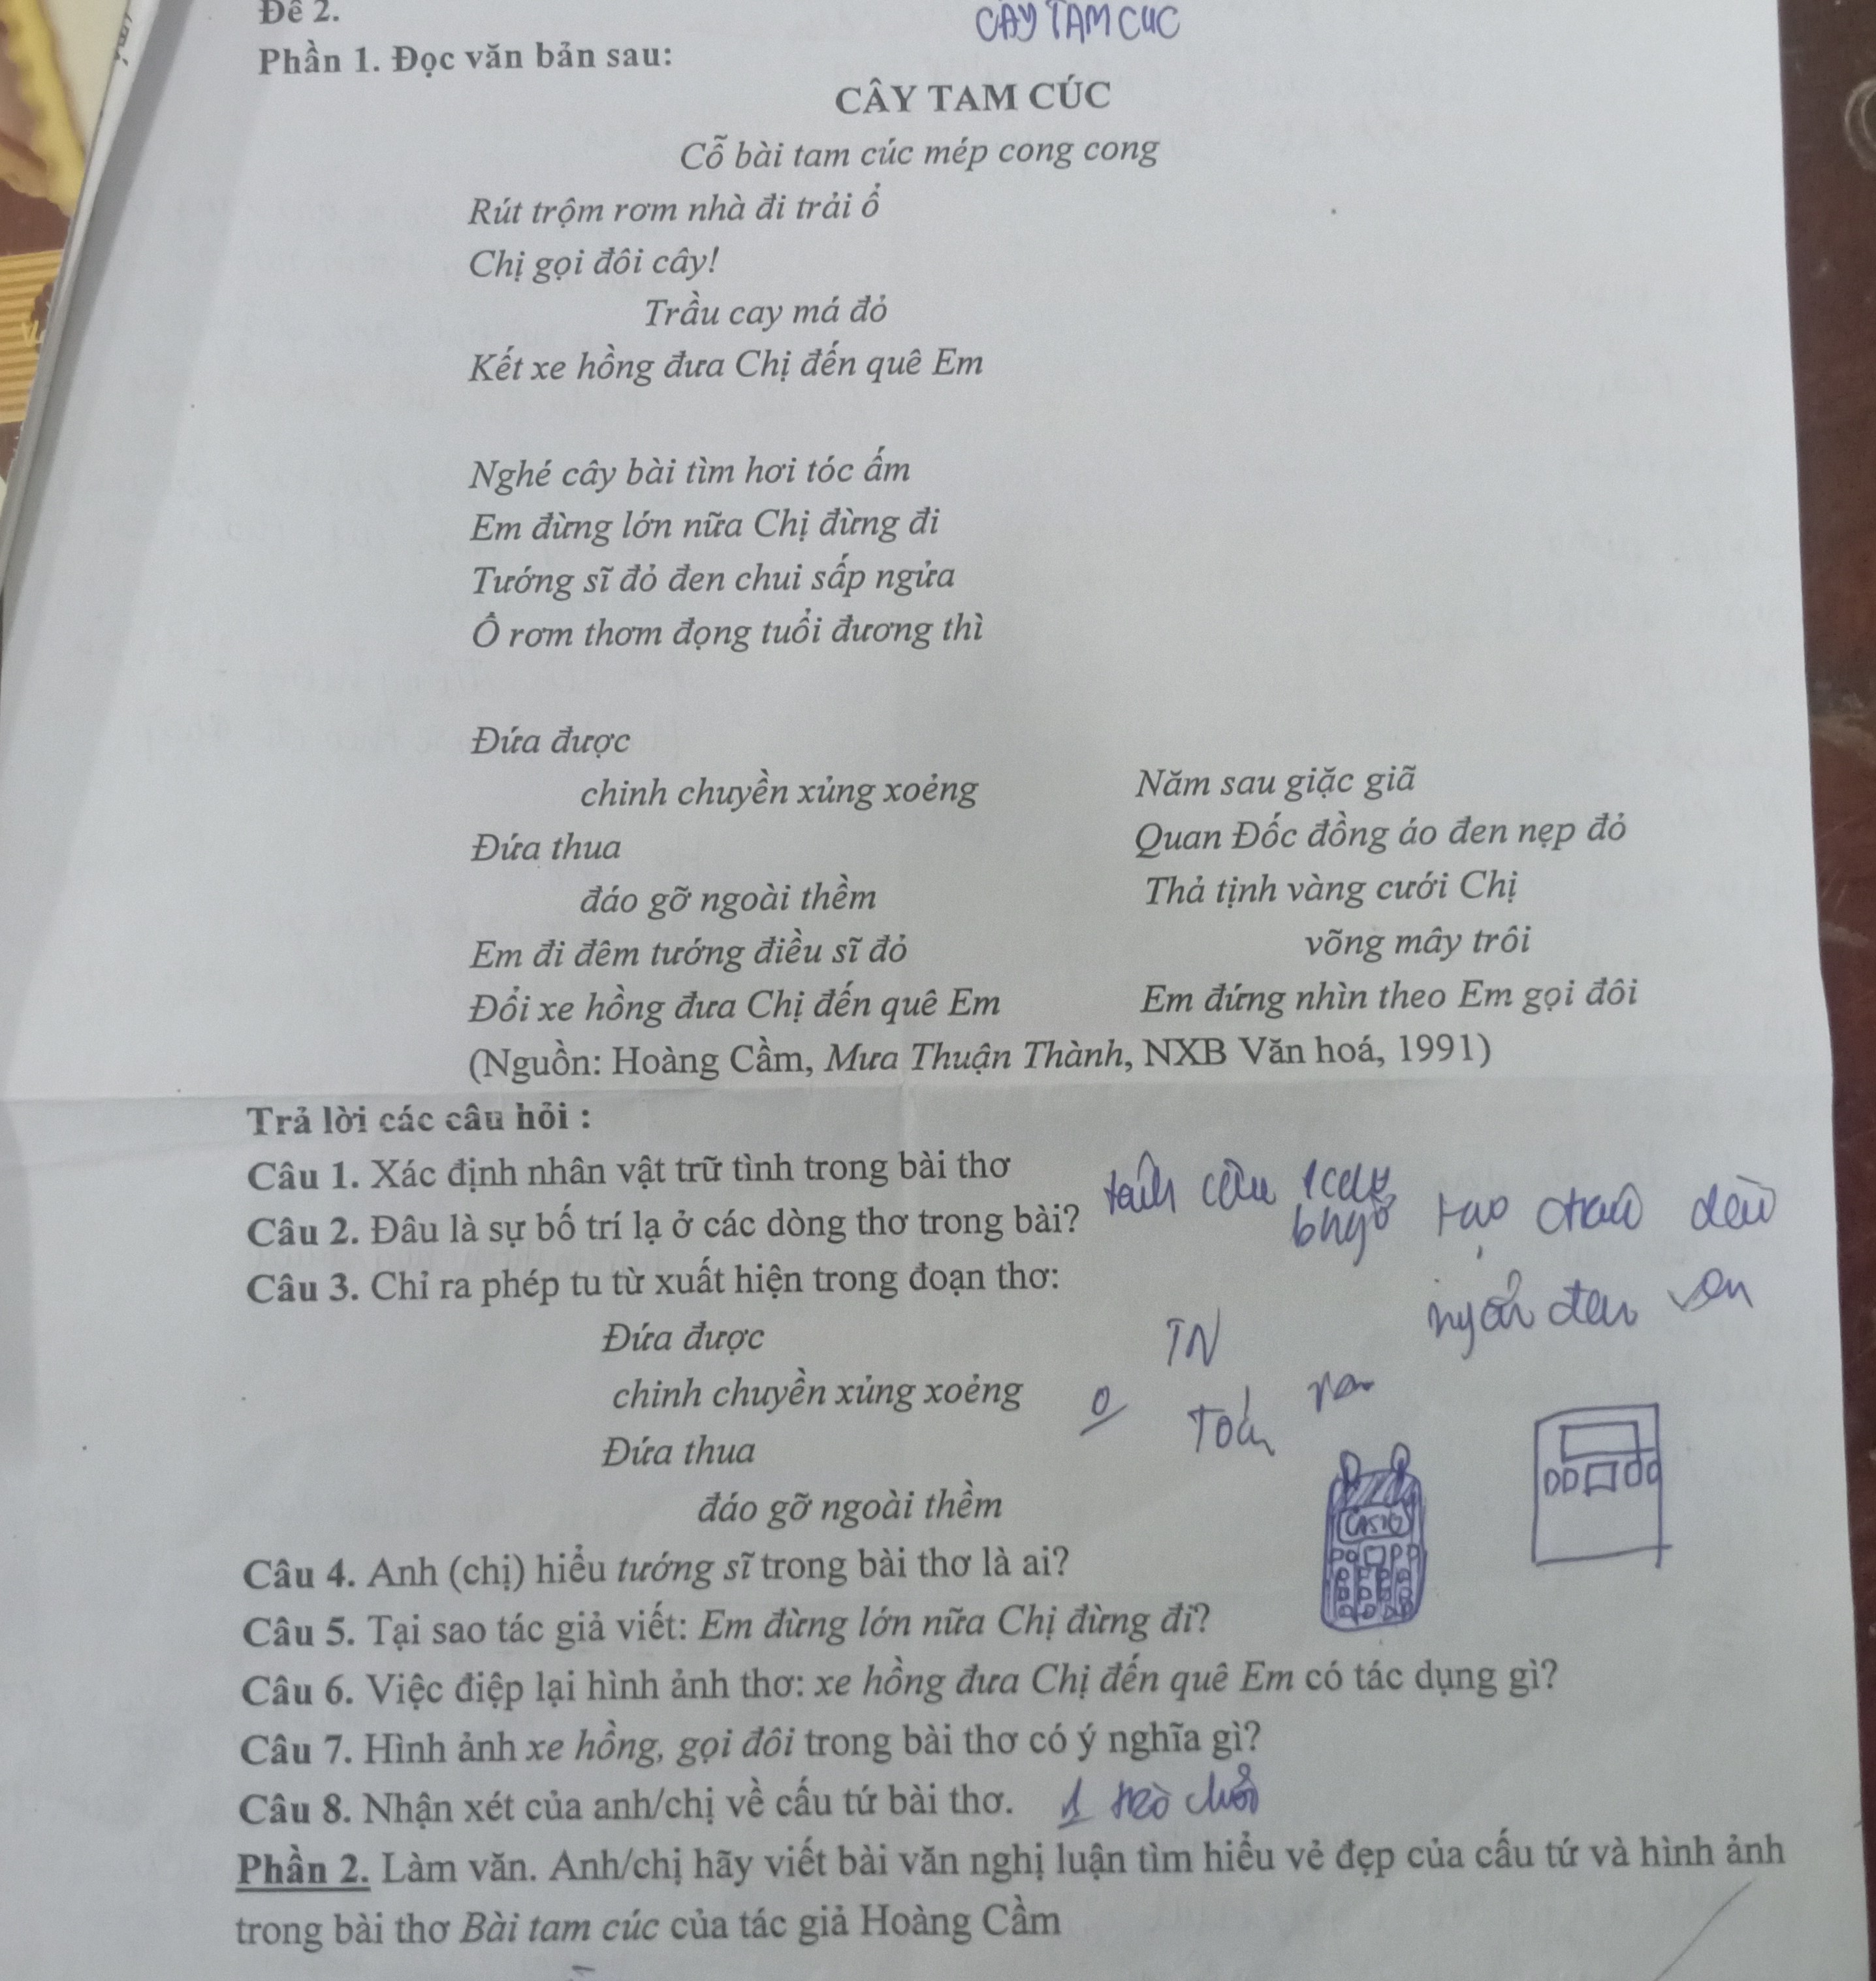 Đề 2.
CÂY TAM CÚC
Phần 1. Đọc văn bản sau:
CÂY TAM CÚC
Cỗ bài tam cúc mép cong cong
Rút trộm rơm nhà đi trải ổ
Chị gọi đôi cây!
Trầu cay má đỏ
Kết xe hồng đưa Chị đến quê Em
Nghé cây bài tìm hơi tóc ấm
Em đừng lớn nữa Chị đừng đi
Tướng sĩ đỏ đen chui sấp ngửa
Ổ rơm thơm đọng tuổi đương thì
Đứa được
chinh chuyền xủng xoẻng
Đứa thua
đáo gỡ ngoài thềm
Em đi đêm tướng điều sĩ đỏ
Đổi xe hồng đưa Chị đến quê Em
Năm sau giặc giã
Quan Đốc đồng áo đen nẹp đỏ
Thả tịnh vàng cưới Chị
võng mây trôi
Em đứng nhìn theo Em gọi đôi
(Nguồn: Hoàng Cầm, Mưa Thuận Thành, NXB Văn hoá, 1991)
Trả lời các câu hỏi :
Câu 1. Xác định nhân vật trữ tình trong bài thơ
Câu 2. Đâu là sự bố trí lạ ở các dòng thơ trong bài?
Câu 3. Chỉ ra phép tu từ xuất hiện trong đoạn thơ:
Đứa được
chinh chuyền xủng xoẻng
Đứa thua
đáo gỡ ngoài thềm
TN
Toán
CASIO
Câu 4. Anh (chị) hiểu tướng sĩ trong bài thơ là ai?
Câu 5. Tại sao tác giả viết: Em đừng lớn nữa Chị đừng đi?
Câu 6. Việc điệp lại hình ảnh thơ: xe hồng đưa Chị đến quê Em có tác dụng gì?
Câu 7. Hình ảnh xe hồng, gọi đôi trong bài thơ có ý nghĩa gì?
Câu 8. Nhận xét của anh/chị về cấu tứ bài thơ. 1 trò chơi
Phần 2. Làm văn. Anh/chị hãy viết bài văn nghị luận tìm hiểu vẻ đẹp của cấu tứ và hình ảnh
trong bài thơ Bài tam cúc của tác giả Hoàng Cầm